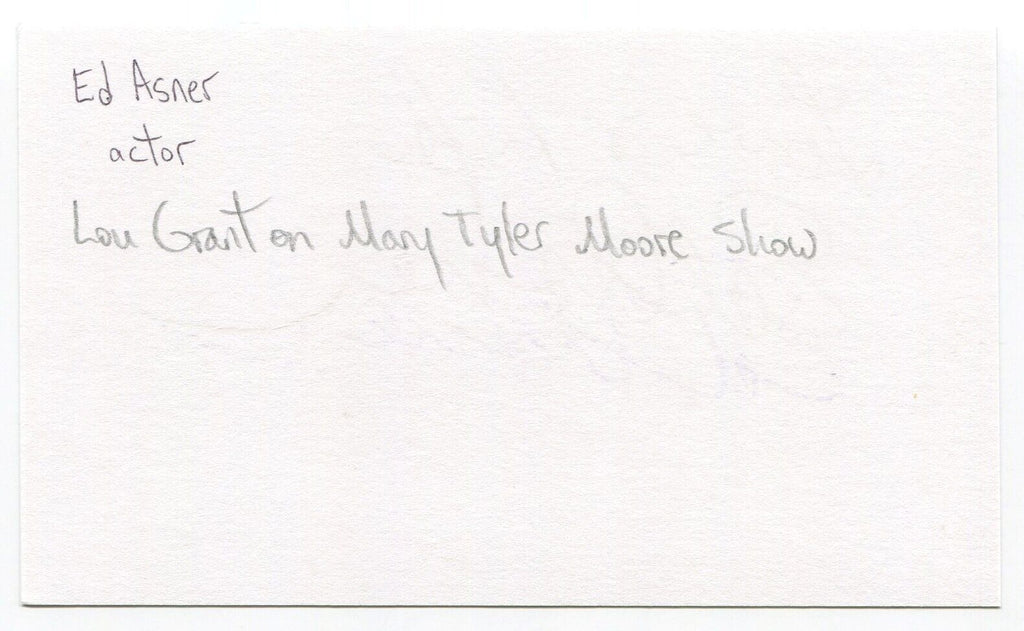 Ed Asner
actor
Lou Grant on Mary Tyler Moore Show